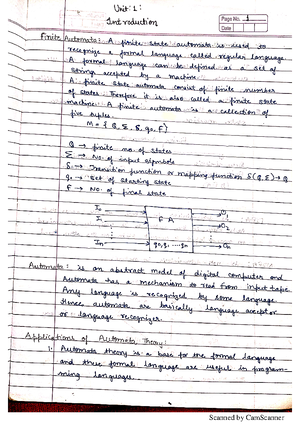 Unit: 1:
Introduction
Page No. 1
Date
Finite Automata: A finite state automata is used to
recognize a formal language called regular language.
A formal language can be defined as a set of
strings accepted by a machine.
A finite state automata consist of finite number
of states. Therefore it is also called a finite state
machine. A finite automata is a collection of
five tuples.
M = { Q, Σ, δ, q0, F }
Q → finite no. of states
Σ → No. of input symbols
δ → Transition function or mapping function δ(Q, Σ) → Q
q0 → Set of starting state
F → No. of final state
I0
I1
In
FA
q0, q1 ... qn
O1
O2
On
Automata: is an abstract model of digital computer and
Automata has a mechanism to read from input tape.
Any language is recognized by some language
Hence automata are basically language acceptor
or language recognizer.
Applications of Automata Theory:
1. Automata theory is a base for the formal language
and these formal language are useful in program-
ming languages.
Scanned by CamScanner